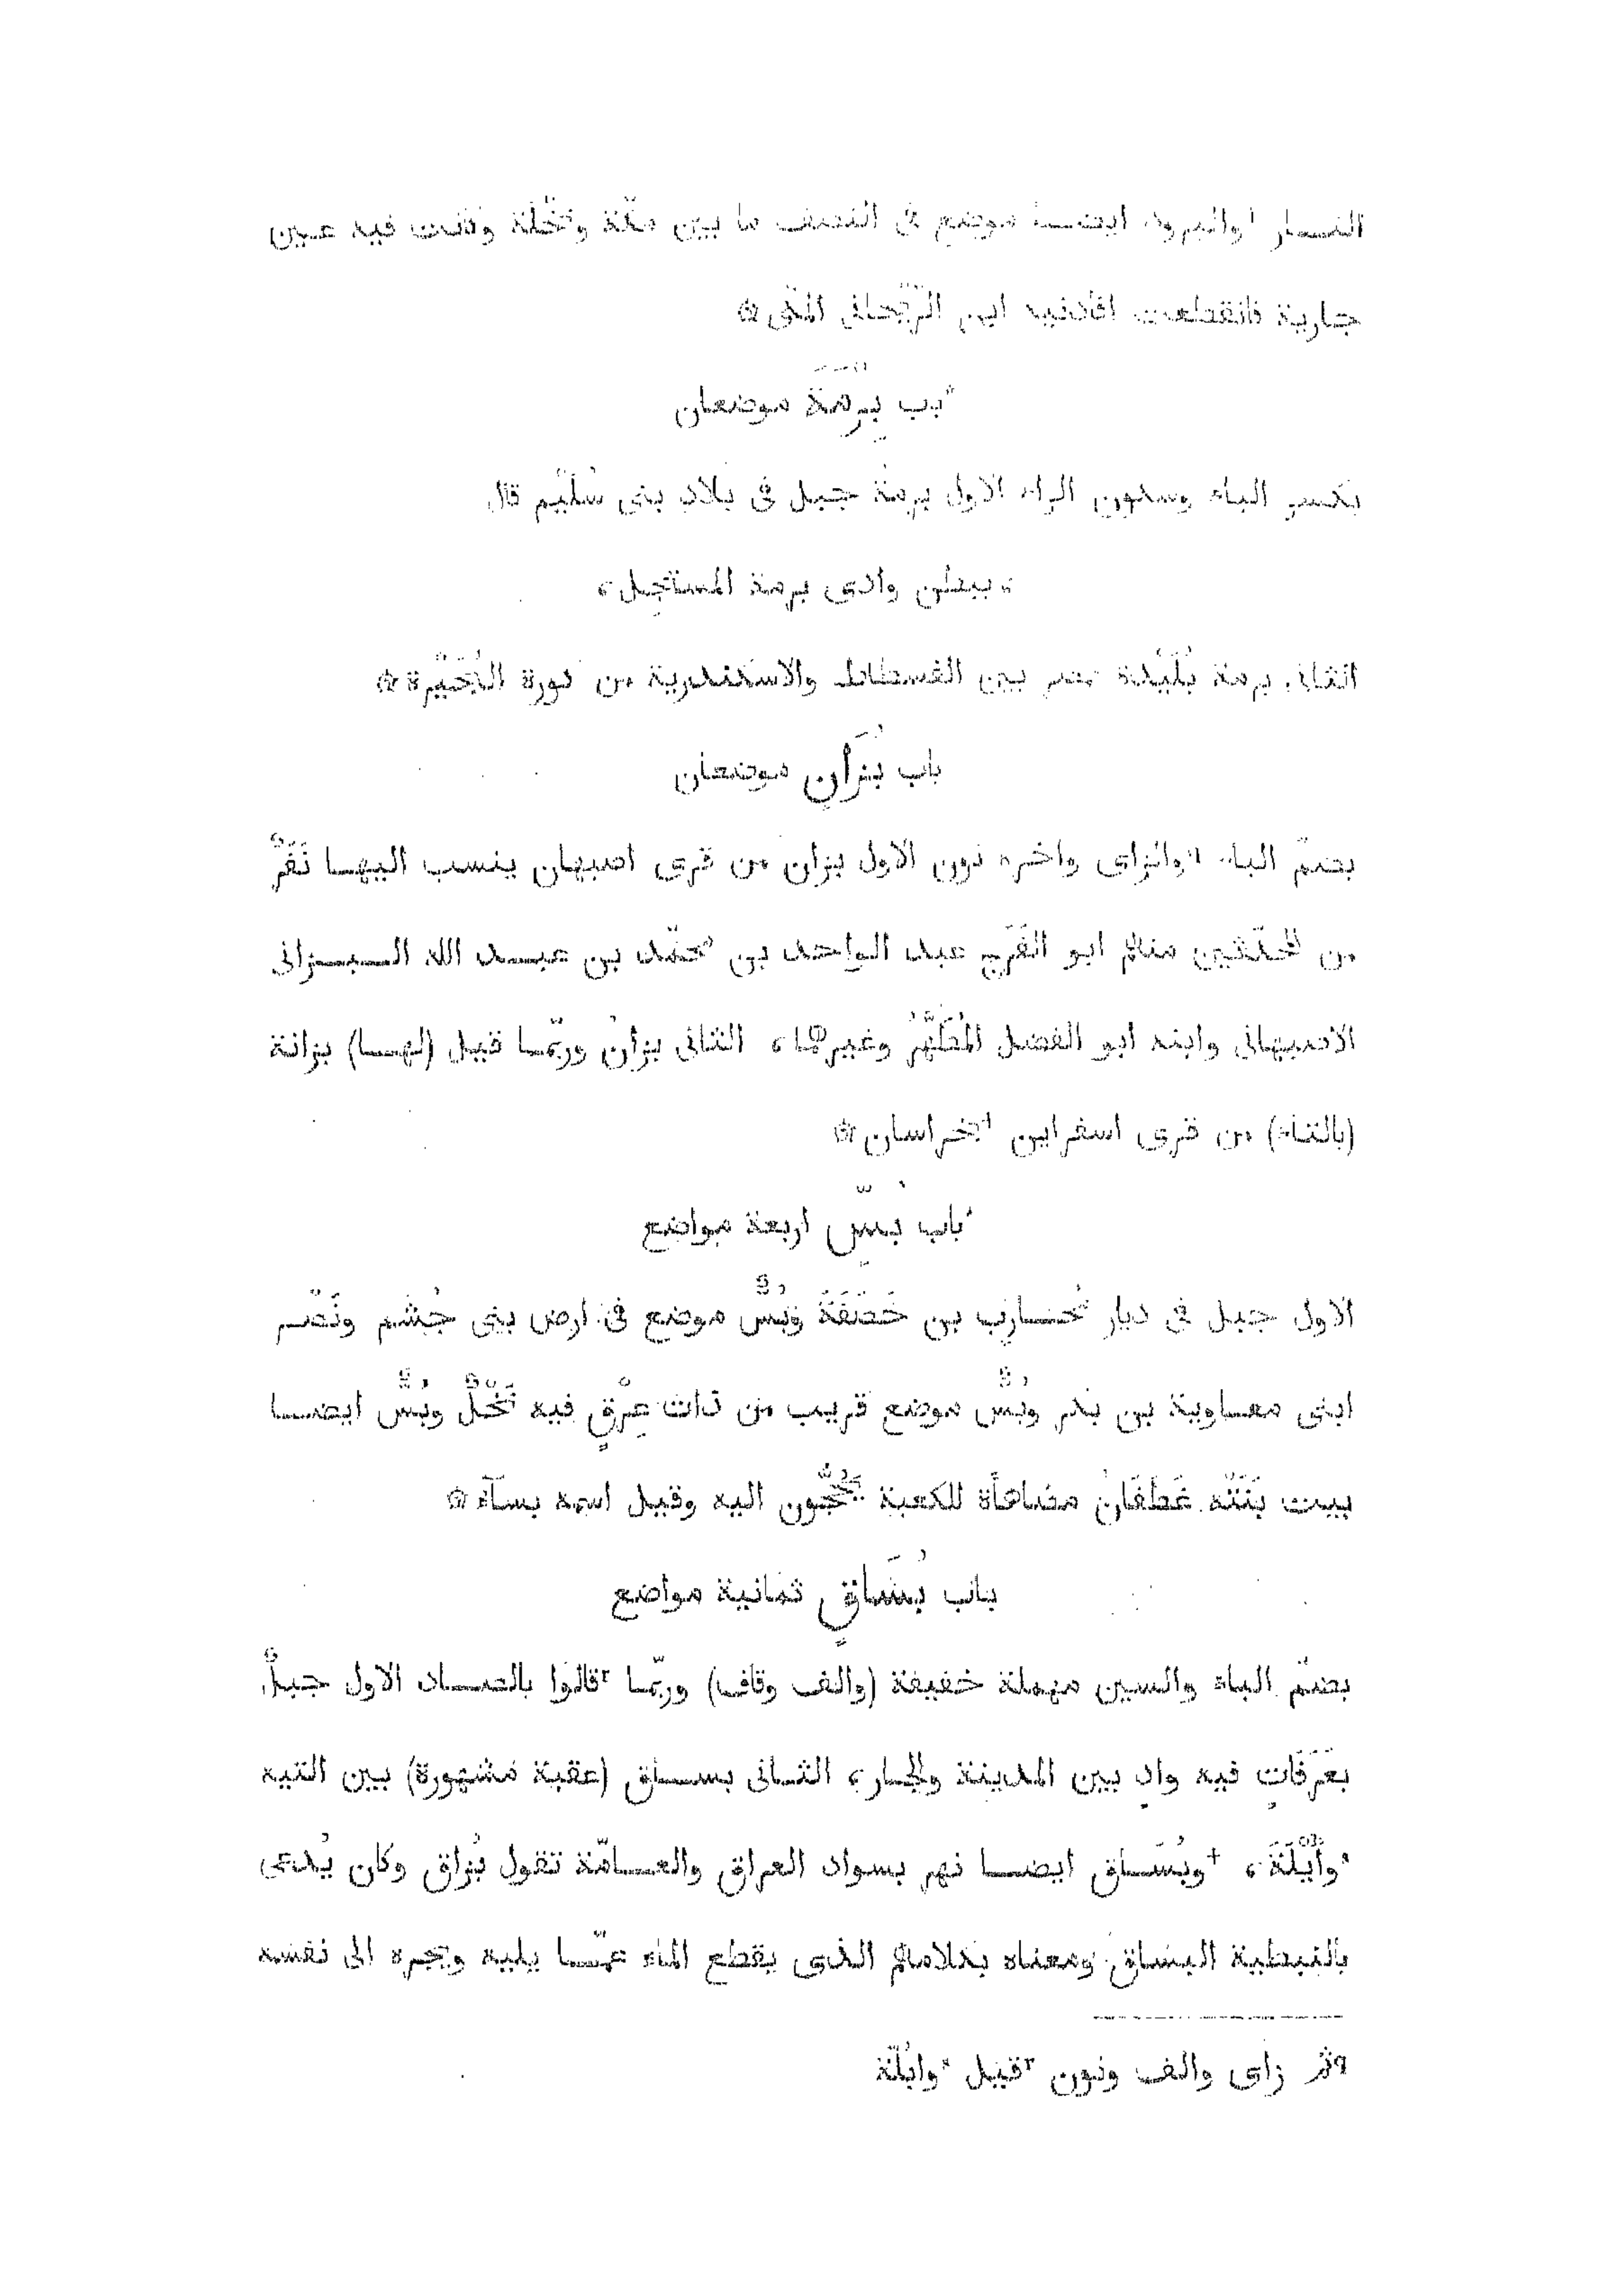 موضع فى ما بين مكّة ونَخْلة وكانت فيه عين
جارية فانقطعت المكّى ۞
باب بِرْمَةَ موضعان
بكسر الباء وسكون الراء الاول برمة جبل فى بلاد بنى سُلَيْم قال
ببطن وادى برمة المستنجل،
الثانى برمة بُلَيْدة بمصر بين الفسطاط والاسكندرية من كورة
باب بُزَانٍ موضعان
بضمّ الباء ⁹والزاى واخره نون الاول بزان من قرى اصبهان ينسب اليها نَفَرٌ
من المحدّثين منهم ابو الفَرَج عبد الواحد بن محمّد بن عبد الله الــبــزانى
الاصبهانى وابنه ابو الفضل المُطَهَّرُ وغيرهما، الثانى بزان وربّما قيل (لهــا) بزانة
(بالتاء) من قرى اسفرايين بخراسان ۞
باب بُسّ اربعة مواضع
الاول جبل فى ديار مُحــارِب بن خَصَفَةَ وبُسٌّ موضع فى ارض بنى جُشَم ونَصْــر
ابنى معــاوية بن بكر وبُسٌّ موضع قريب من ذات عِرْقٍ فيه نَخْلٌ وبُسٌّ ايضــا
بيت بَنَتْه غَطَفَانُ مضاهأة للكعبة يَحُجُّون اليه وقيل اسمه بساء ۞
باب بُسَاقٍ ثمانية مواضع
بضمّ الباء والسين مهملة خفيفة (والف وقاف) وربّمــا ²قالوا بالصــاد الاول جبلٌ
بعَرَفَاتٍ فيه وادٍ بين المدينة والجار، الثانى بســاق (عقبة مشهورة) بين التيه
وأَيْلَةَ، †وبُسَــاق ايضــا نهر بسواد العراق والعــامّة تقول بُزاق وكان يُدعى
بالنبطية البساق ومعناه بكلامهم الذى يقطع الماء عمّــا يليه ويجره الى نفسه
⁹ثم زاى والف ونون ²قيل وايْلَة